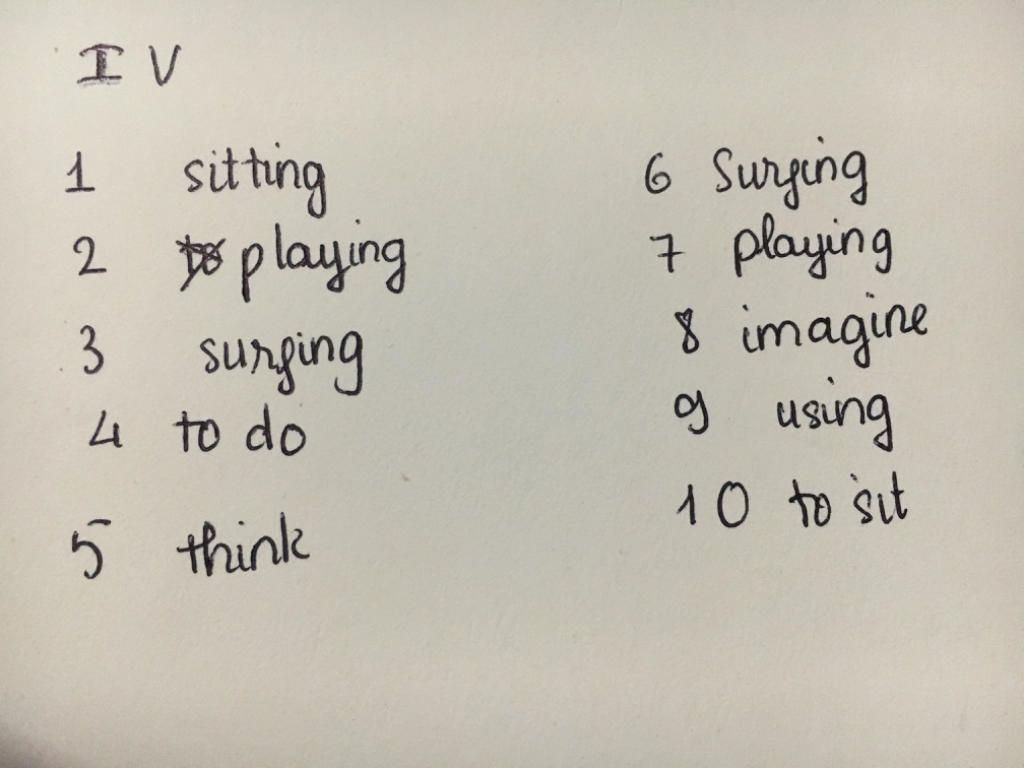 IV
1 sitting
2 playing
3 surfing
4 to do
5 think
6 Surfing
7 playing
8 imagine
9 using
10 to sit